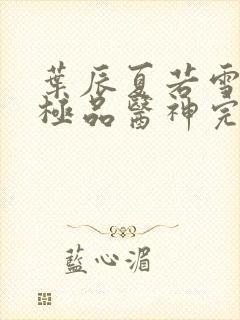 葉辰夏若雪
極品醫神完
藍心湄